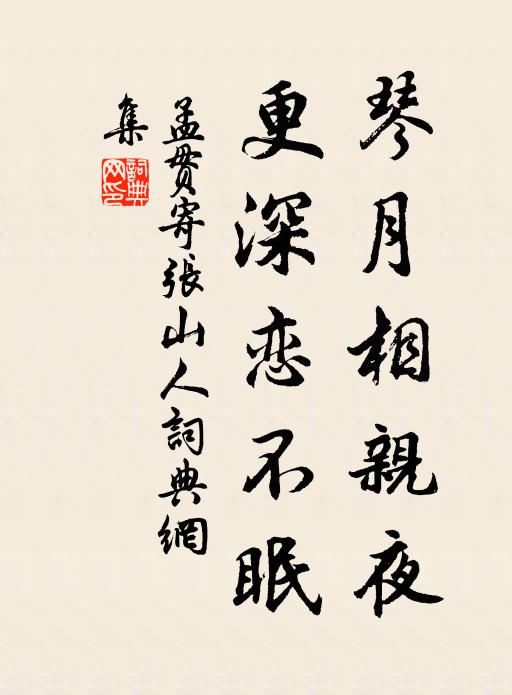 琴月相親夜
更深恋不眠
孟贯寄張山人詞典網
集
詞典
网印